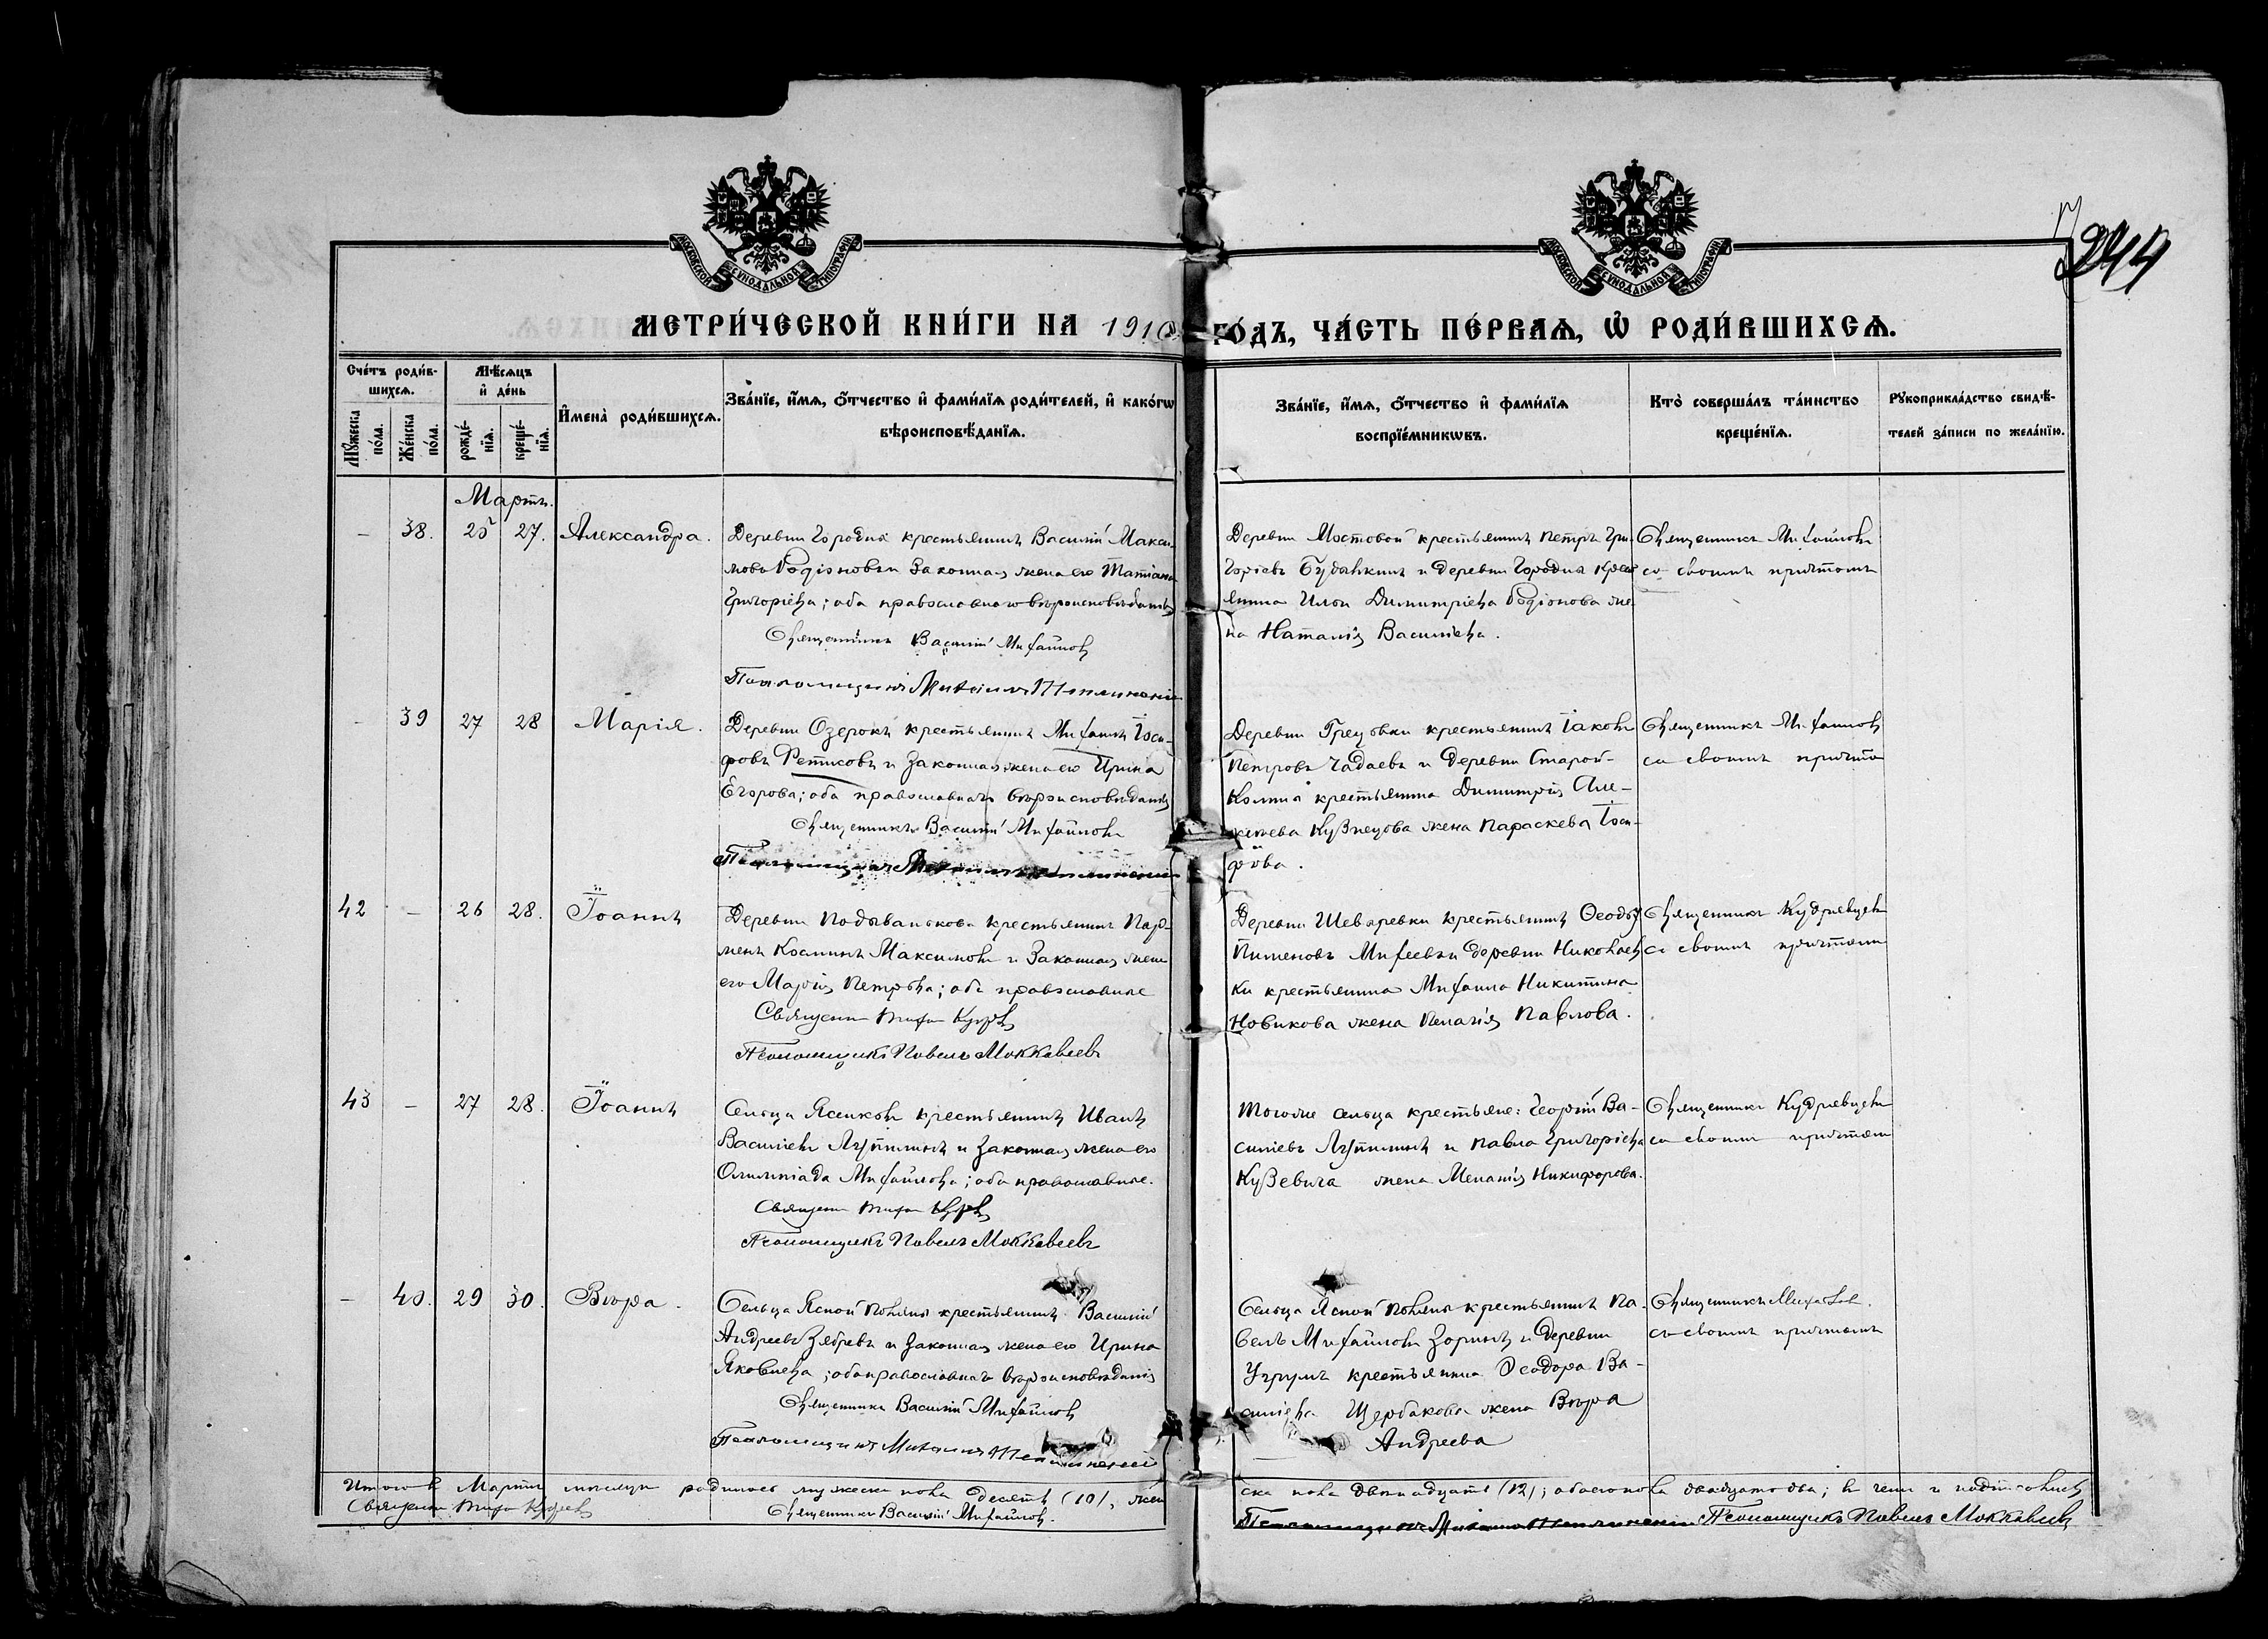 244
МОСКОВСКОЙ СѴНОДАЛЬНОЙ ТИПОГРАФІИ
МОСКОВСКОЙ СѴНОДАЛЬНОЙ ТИПОГРАФІИ
МЕТРИ́ЧЕСКОЙ КНИ́ГИ НА 1910 ГО́ДЪ, ЧА́СТЬ ПЕ́РВАѦ, Ѡ҆ РОДИ́ВШИХСѦ.
Сче́тъ роди́в-
шихсѧ.
Мꙋ́жеска по́ла.
Же́нска по́ла.
Мѣ́сѧцъ
и҆ де́нь
рожде́-
нїѧ.
креще́-
нїѧ.
И҆мена̀ роди́вшихсѧ.
Зва́нїе, и҆́мѧ, ѻ҆́тчество и҆ фами́лїѧ роди́телей, и҆ како́гѡ
вѣроисповѣ́данїѧ.
Зва́нїе, и҆́мѧ, ѻ҆́тчество и҆ фами́лїѧ
воспрїе́мникѡвъ.
Кто̀ соверша́лъ та́инство
креще́нїѧ.
Рꙋкоприкла́дство свидѣ́-
телей за́писи по жела́нїю.
Мартъ.
— 38. 25 27. Александра.
Деревни Городня крестьянинъ Василій Макси-
мовъ Родіоновъ и законная жена его Татіана
Григоріева; оба православнаго вѣроисповѣданія
Священникъ Василій Михайловъ
Псаломщикъ Михаилъ
Деревни Мостовой крестьянинъ Петръ Гри-
горіевъ Будынкинъ и деревни Городня крест
янина Ильи Димитріева Родіонова же-
на Наталія Васильева.
Священникъ Михайловъ
со своимъ причтомъ
— 39 27 28 Марія.
Деревни Озерокъ крестьянинъ Михаилъ Іоси-
фовъ Ретиковъ и законная жена его Ирина
Егорова; оба православнаго вѣроисповѣданія
Священникъ Василій Михайловъ
Псаломщикъ Михаилъ
Деревни Грецовки крестьянинъ Іаковъ
Петровъ Чадаевъ и деревни Старой-
Колпны крестьянина Димитрія Але-
ксѣева Кузнецова жена Параскева Іоси-
фова.
Священникъ Михайловъ
со своимъ причто
42 — 26 28. Іоаннъ
Деревни Подыванькова крестьянинъ Пар-
менъ Косминъ Максимовъ и законная жена
его Марія Петрова; оба православные
Псаломщикъ Павелъ Маккавеевъ
Деревни Шеваревки крестьянинъ Ѳеодоръ
Пименовъ Михеевъ и деревни Николаев
ки крестьянина Михаила Никитина
Новикова жена Пелагія Павлова.
Священникъ Кудрявцевъ
со своимъ причтомъ
43 — 27 28. Іоаннъ
Сельца Ясенковъ крестьянинъ Иванъ
Васильевъ Лупилинъ и законная жена его
Олимпіада Михайлова; оба православные.
Псаломщикъ Павелъ Маккавеевъ
Тогоже сельца крестьяне: Георгій Ва-
силіевъ Лупилинъ и Павла Григоріева
Кузевича жена Меланія Никифорова.
Священникъ Кудрявцевъ
со своимъ причтомъ
— 40. 29 30. Вѣра.
Сельца Ясной Поляны крестьянинъ Василій
Андреевъ Зябревъ и законная жена его Ирина
Яковлева; оба православнаго вѣроисповѣданія
Священникъ Василій Михайловъ
Псаломщикъ Михаилъ
Сельца Ясной Поляны крестьянинъ Па-
велъ Михайловъ Зоринъ и деревни
Угрумъ крестьянина Ѳеодора Ва-
силіева Щербакова жена Вѣра
Андреева
Священникъ Михайловъ.
съ своимъ причтомъ
Итого въ Мартѣ мѣсяцѣ родилось мужеска пола десять (10), жен
ска пола двѣнадцать (12); обоего пола двадцать два; въ чемъ и подписовались
Священникъ Василій Михайловъ.
Псаломщикъ Михаилъ Псаломщикъ Павелъ Маккавеевъ